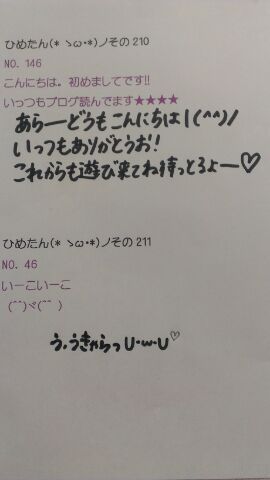 ひめたん(* ゝω・*)ノその210
NO. 146
こんにちは。初めましてです!!
いっつもブログ読んでます★★★★
あらーどうもこんにちは!(^^)/
いっつもありがとうお!
これからも遊び来てね待っとるよー♡
ひめたん(* ゝω・*)ノその211
NO. 46
いーこいーこ
(⌒)ヾ(⌒ )
う、うきゃらっ U・ω・U♡